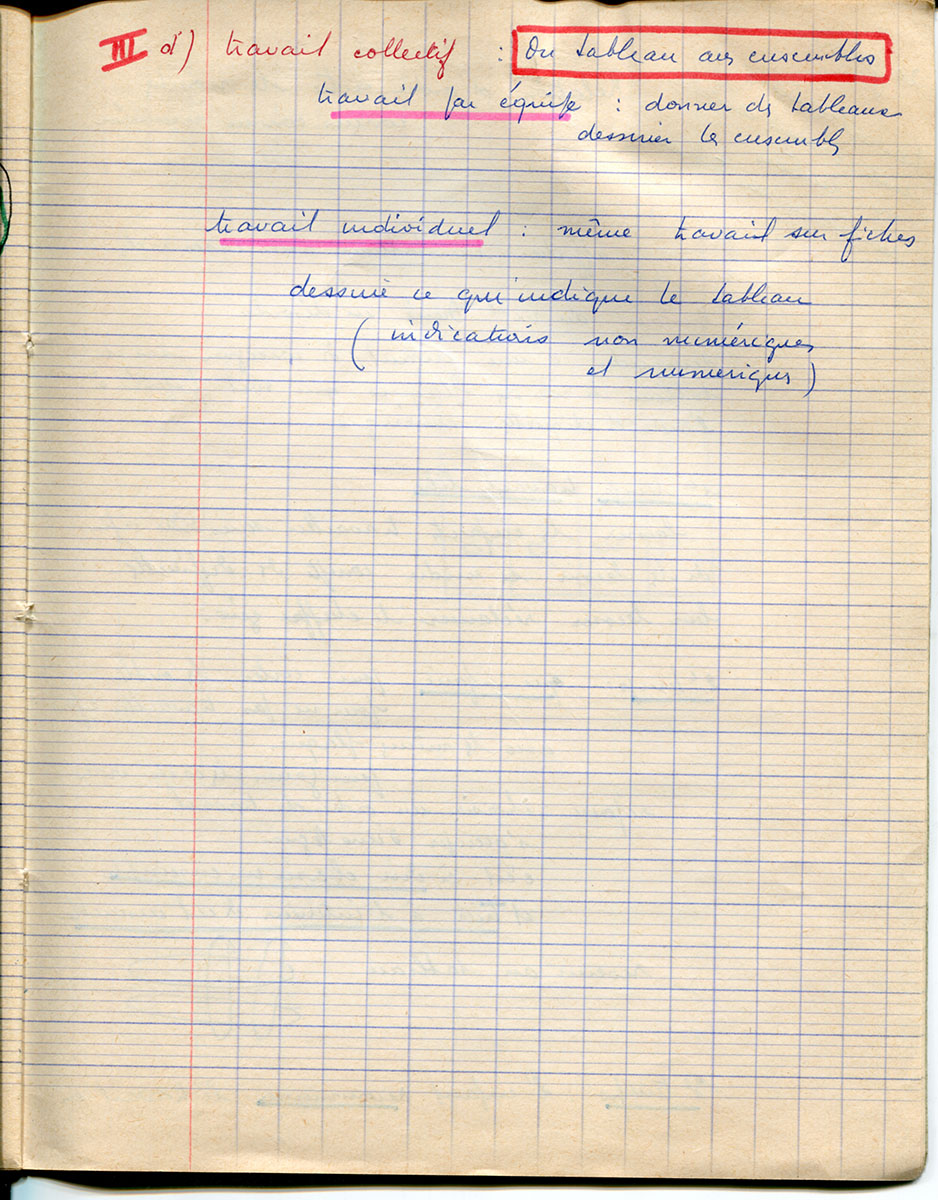 III d') travail collectif : Du tableau aux ensembles
travail par équipe : donner des tableaux
dessiner les ensembles
travail individuel : même travail sur fiches
dessine ce qu'indique le tableau
( indications non numériques
et numériques )